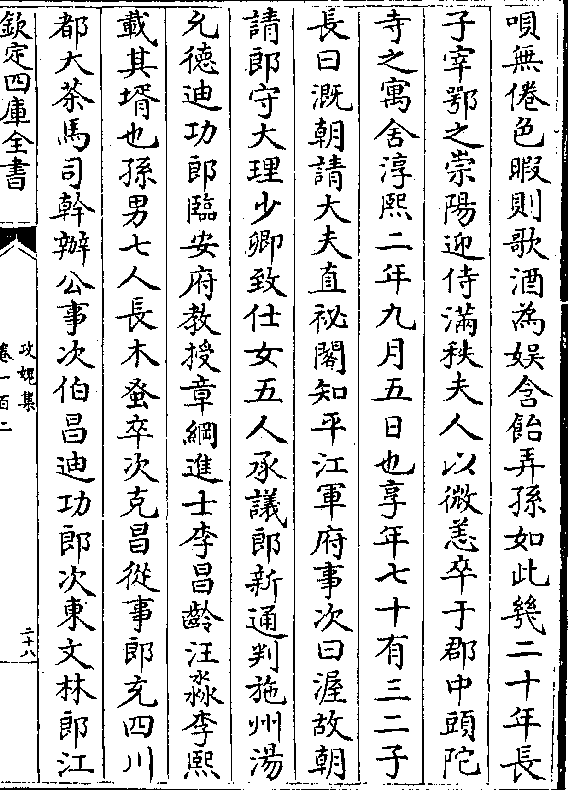 唄無倦色暇則歌酒為娱含飴弄孫如此幾二十年長
子宰鄂之崇陽迎侍滿秩夫人以微恙卒于郡中頭陀
寺之寓舍淳熙二年九月五日也享年七十有三二子
長曰溉朝請大夫直祕閣知平江軍府事次曰渥故朝
請郎守大理少卿致仕女五人承議郎新通判施州湯
允德迪功郎臨安府教授章綱進士李昌齡汪淼李熙
載其壻也孫男七人長木蚤卒次克昌從事郎充四川
都大茶馬司幹辦公事次伯昌迪功郎次東文林郎江
欽定四庫全書
攻媿集
卷一百二
二十八